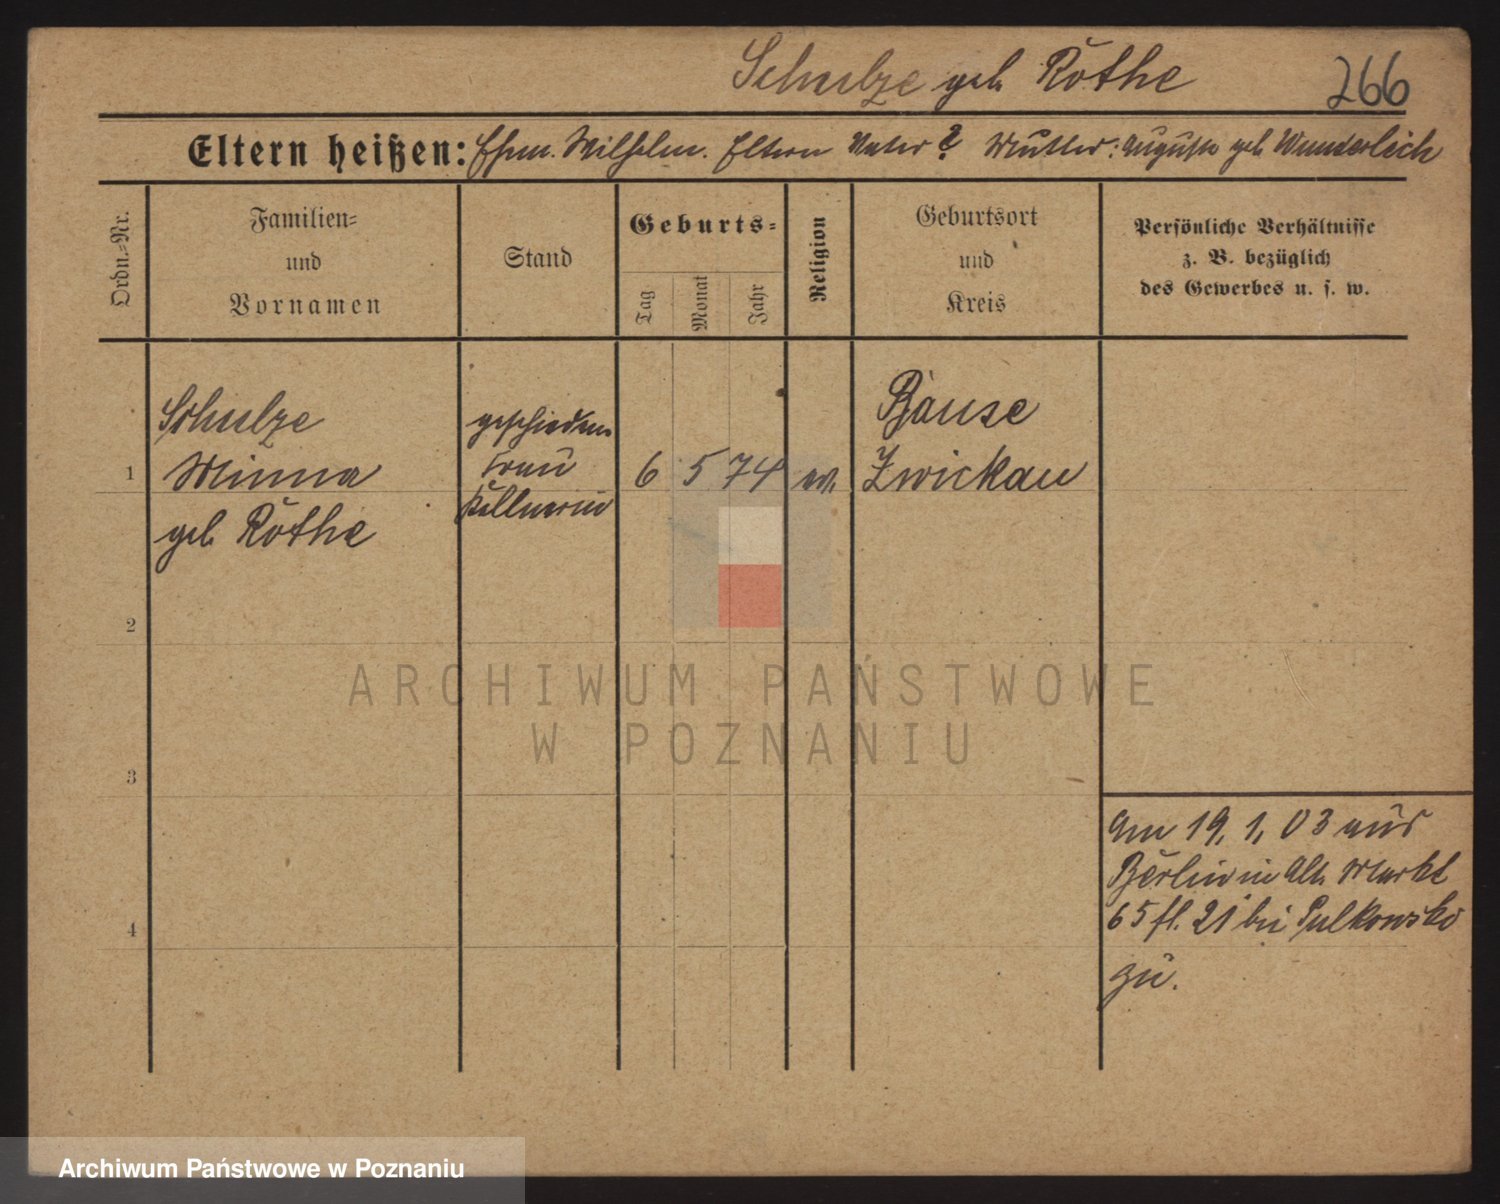 Schulze geb. Röthe 266
Eltern heißen: Ehem. Wilhelm. Eltern Vater? Mutter: Auguste geb. Wunderlich
Ordn.-Nr.
Familien-
und
Vornamen
Stand
Geburts-
Tag
Monat
Jahr
Religion
Geburtsort
und
Kreis
Persönliche Verhältnisse
z. B. bezüglich
des Gewerbes u. s. w.
1
Schulze
Minna
geb. Röthe
geschiedene
Frau
Kellnerin
6 5 74 ev.
Zwickau
2
3
4
Am 19. 1. 03 aus
Berlin in Alt. Markt
65 fl. 21 bei Pulkowski
zu.
ARCHIWUM PAŃSTWOWE
W POZNANIU
Archiwum Państwowe w Poznaniu